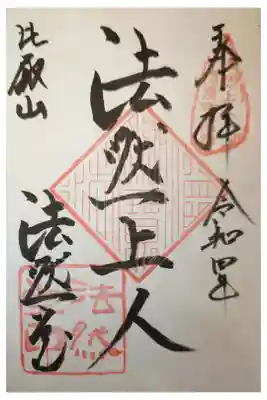 奉拝
令和四年
法然上人
比叡山
法然堂
法然